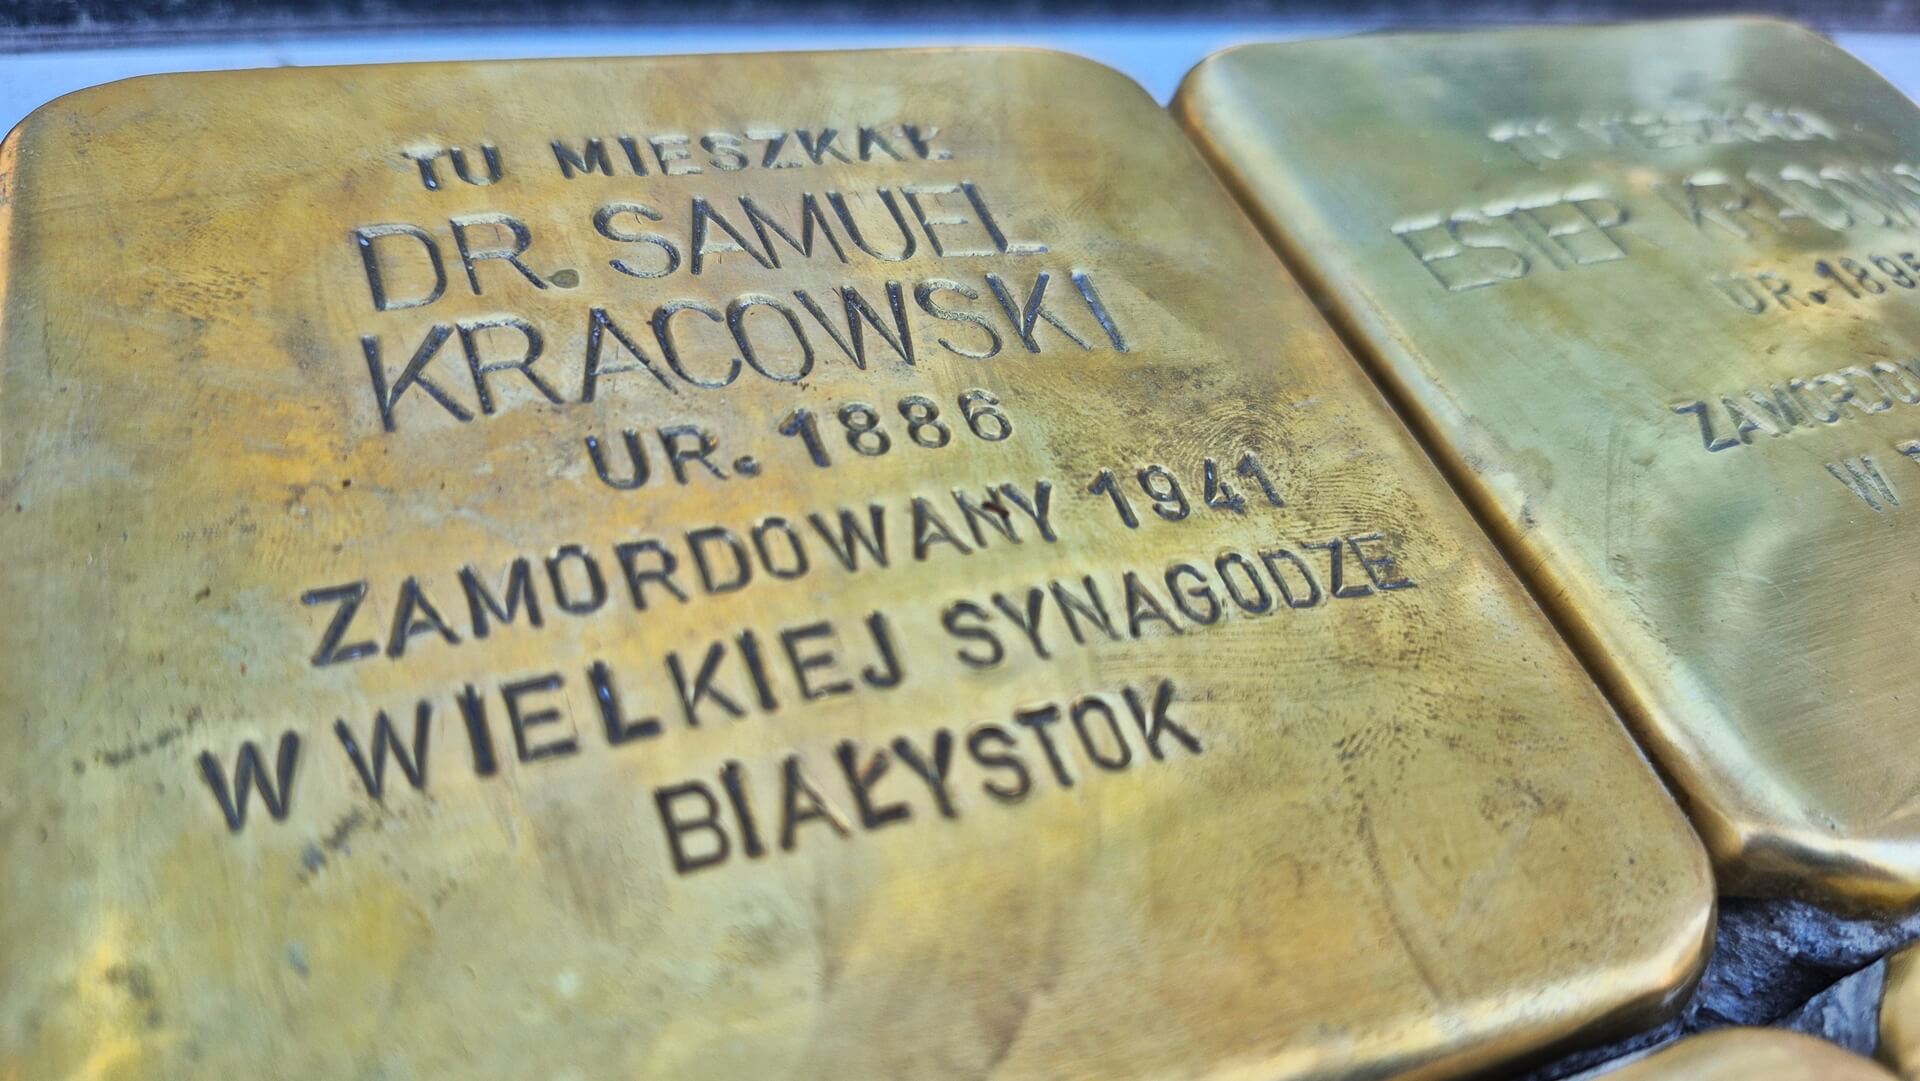 TU MIESZKAŁ
DR. SAMUEL
KRACOWSKI
UR. 1886
ZAMORDOWANY 1941
W WIELKIEJ SYNAGODZE
BIAŁYSTOK
TU MIESZKAŁA
ESTER
UR. 1895
W